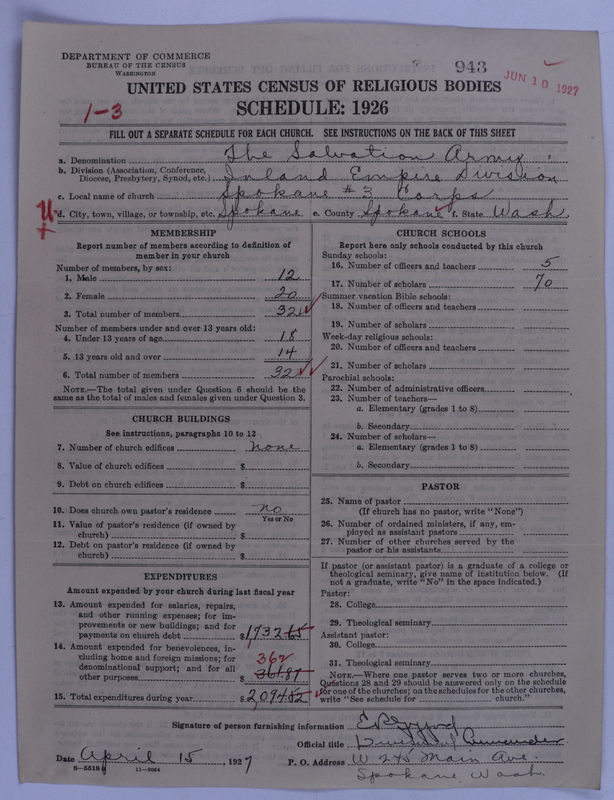 DEPARTMENT OF COMMERCE
BUREAU OF THE CENSUS
WASHINGTON
943
JUN 10 1927
UNITED STATES CENSUS OF RELIGIOUS BODIES
1-3
SCHEDULE: 1926
FILL OUT A SEPARATE SCHEDULE FOR EACH CHURCH. SEE INSTRUCTIONS ON THE BACK OF THIS SHEET
a. Denomination The Salvation Army
b. Division (Association, Conference, Diocese, Presbytery, Synod, etc.) Inland Empire Division
c. Local name of church Spokane #3 Corps
d. City, town, village, or township, etc. Spokane e. County Spokane f. State Wash.
MEMBERSHIP
Report number of members according to definition of
member in your church
Number of members, by sex:
1. Male 12
2. Female 20
3. Total number of members 32
Number of members under and over 13 years old:
4. Under 13 years of age 18
5. 13 years old and over 14
6. Total number of members 32
NOTE.—The total given under Question 6 should be the
same as the total of males and females given under Question 3.
CHURCH BUILDINGS
See instructions, paragraphs 10 to 12
7. Number of church edifices none
8. Value of church edifices $
9. Debt on church edifices $
10. Does church own pastor's residence no
Yes or No
11. Value of pastor's residence (if owned by
church) $
12. Debt on pastor's residence (if owned by
church) $
EXPENDITURES
Amount expended by your church during last fiscal year
13. Amount expended for salaries, repairs,
and other running expenses; for im-
provements or new buildings; and for
payments on church debt $1,732.65
14. Amount expended for benevolences, in-
cluding home and foreign missions; for
denominational support; and for all
other purposes 362
$361.87
15. Total expenditures during year $2,094.52
CHURCH SCHOOLS
Report here only schools conducted by this church
Sunday schools:
16. Number of officers and teachers 5
17. Number of scholars 70
Summer vacation Bible schools:
18. Number of officers and teachers
19. Number of scholars
Week-day religious schools:
20. Number of officers and teachers
21. Number of scholars
Parochial schools:
22. Number of administrative officers
23. Number of teachers—
a. Elementary (grades 1 to 8)
b. Secondary
24. Number of scholars—
a. Elementary (grades 1 to 8)
b. Secondary
PASTOR
25. Name of pastor
(If church has no pastor, write "None")
26. Number of ordained ministers, if any, em-
ployed as assistant pastors
27. Number of other churches served by the
pastor or his assistants
If pastor (or assistant pastor) is a graduate of a college or
theological seminary, give name of institution below. (If
not a graduate, write "No" in the space indicated.)
Pastor:
28. College
29. Theological seminary
Assistant pastor:
30. College
31. Theological seminary
NOTE.—Where one pastor serves two or more churches,
Questions 28 and 29 should be answered only on the schedule
for one of the churches; on the schedules for the other churches,
write "See schedule for church."
Signature of person furnishing information
Official title
Date April 15, 1927 P. O. Address W 245 Main Ave.
Spokane, Wash.
11-8684